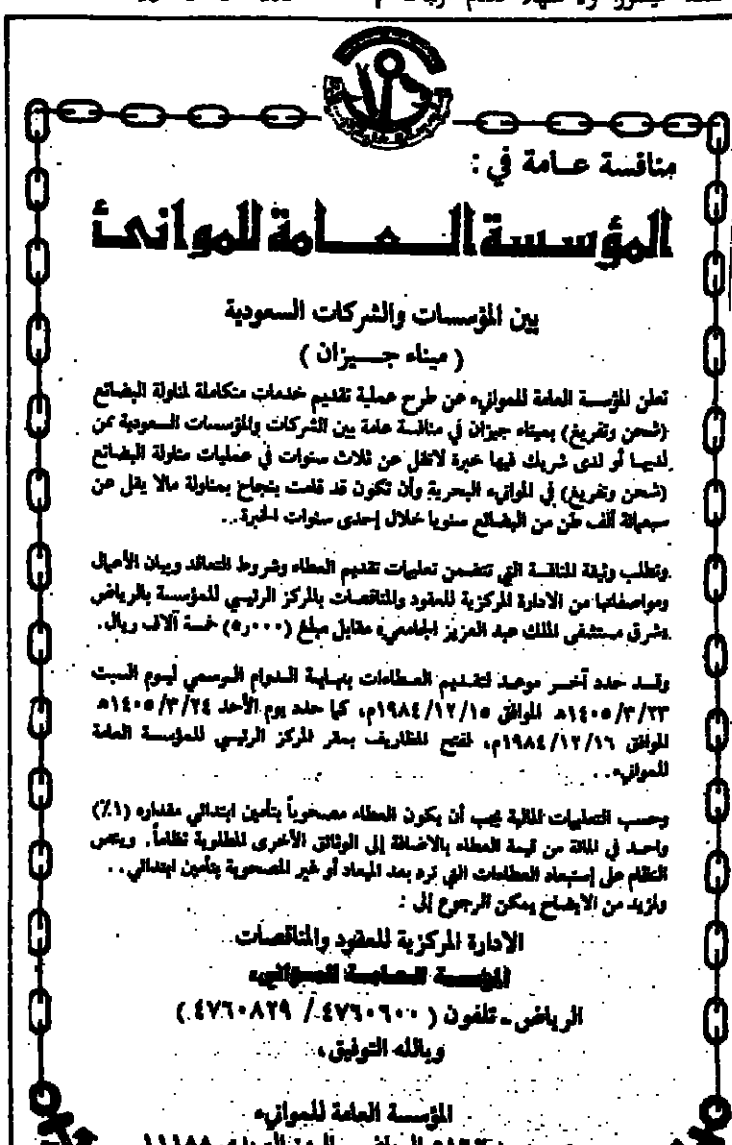 منافسة عامة في :
المؤسسة العامة للموانئ
بين المؤسسات والشركات السعودية
( ميناء جيزان )
تعلن المؤسسة العامة للموانيء عن طرح عملية تقديم خدمات متكاملة لمناولة البضائع
(شحن وتفريغ) بميناء جيزان في منافسة عامة بين الشركات والمؤسسات السعودية ممن
لديها أو لدى شريك فيها خبرة لاتقل عن ثلاث سنوات في عمليات مناولة البضائع
(شحن وتفريغ) في الموانيء البحرية وأن تكون قد قامت بنجاح بمناولة مالا يقل عن
سبعمائة ألف طن من البضائع سنويا خلال إحدى سنوات الخبرة . .
وتطلب وثيقة المنافسة التي تتضمن تعليمات تقديم العطاء وشروط التعاقد وبيان الأعمال
ومواصفاتها من الادارة المركزية للعقود والمناقصات بالمركز الرئيسي للمؤسسة بالرياض
بشرق مستشفى الملك عبد العزيز الجامعي، مقابل مبلغ (٥٫٠٠٠) خمسة آلاف ريال .
وقد حدد آخر موعد لتقديم العطاءات بنهاية الدوام الرسمي ليوم السبت
١٤٠٥/٣/٢٣هـ الموافق ١٩٨٤/١٢/١٥م، كما حدد يوم الأحد ١٤٠٥/٣/٢٤هـ
الموافق ١٩٨٤/١٢/١٦م، لفتح المظاريف بمقر المركز الرئيسي للمؤسسة العامة
للموانيء . .
وحسب التعليمات المالية يجب أن يكون العطاء مصحوباً بتأمين ابتدائي مقداره (١٪)
واحد في المائة من قيمة العطاء بالاضافة إلى الوثائق الأخرى المطلوبة نظاماً . وينص
النظام على إستبعاد العطاءات التي ترد بعد الميعاد أو غير المصحوبة بتأمين ابتدائي . .
ولمزيد من الايضاح يمكن الرجوع إلى :
الادارة المركزية للعقود والمناقصات
المؤسسة العامة للموانيء
الرياض - تلفون ( ٤٧٦٠٦٠٠ / ٤٧٦٠٨٢٩ )
وبالله التوفيق ،
المؤسسة العامة للموانيء
الرياض - الرمز البريدي ١١١٨٨